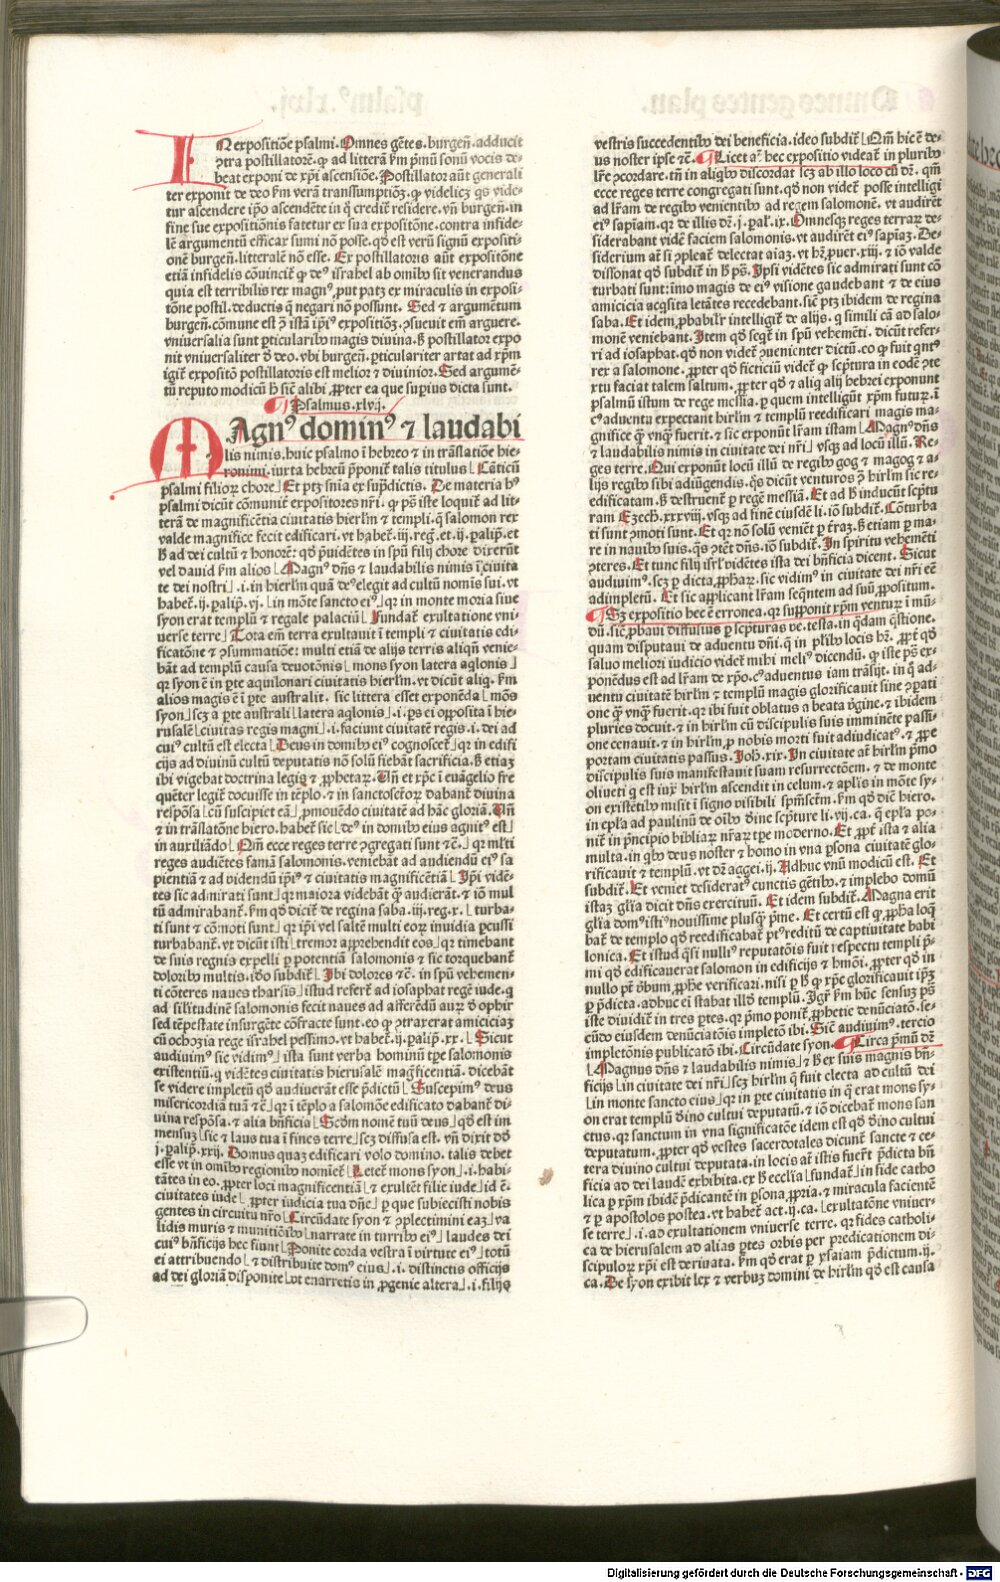 IN expositiõe psalmi. Omnes gẽtes. burgeñ. adducit
ꝯtra postillatorẽ. ꝙ ad litterã ẜm pͥmũ sonũ vocis de-
beat exponi de xp̃i ascensiõe. Postillator aũt generali
ter exponit de deo ẜm verã transsumptiõꝫ. ꝙ videlicꝫ qͣs vide-
tur ascendere ip̃o ascendẽte in q̃ credit̃ residere. vñ burgeñ. in
fine sue expositiõnis fatetur ex sua expositõne. contra infide-
lẽ argumentũ efficax sumi nõ posse. qḋ est verũ signũ expositi-
onẽ burgeñ. litteralẽ nõ esse. Ex postillatoris aũt expositõne
etiã infidelis cõuincit̃ ꝙ deꝰ israhel ab omĩbꝰ sit venerandus
quia est terribilis rex magnꝰ. put patꝫ ex miraculis in exposi-
tõne postil. deductis q̃ negari nõ possunt. Sed ⁊ argumẽtum
burgeñ. cõmune est ꝯͣ istã ip̃iꝰ expositiõꝫ. ꝯsueuit em̃ arguere.
vniuersalia sunt ꝑticularibꝰ magis diuina. ẜ postillator expo
nit vniuersaliter ḋ deo. vbi burgeñ. ꝑticulariter artat ad xp̃m
igit̃ expositõ postillatoris est melior ⁊ diuinior. Sed argumẽ-
tũ reputo modicũ ħ sic̃ alibi ꝓpter ea que suꝑius dicta sunt.
Psalmus. xlvij.
MAgnꝰ dominꝰ ⁊ laudabi
lis nimis. huic psalmo ĩ hebreo ⁊ in trãslatiõe hie-
ronimi. iuxta hebreũ p̃ponit̃ talis titulus Cãticũ
psalmi filioꝝ chore Et ptꝫ sñia ex sup̃dictis. De materia hꝰ
psalmi dicũt cõmunit̃ expositores nr̃i. ꝙ ps̃ iste loquit̃ ad lit-
terã de magnificẽtia ciuitatis hierlm̃ ⁊ templi. q̃ salomon rex
valde magnifice fecit edificari. vt habet̃. iij. reg. et. ij. ꝑalip̃. et
ħ ad dei cultũ ⁊ honorẽ: qḋ p̃uidẽtes in spũ filij chore dixerũt
vel dauid ẜm alios Magnꝰ dñs ⁊ laudabilis nimis ĩ ciuita
te dei nostri .i. in hierlm̃ quã deꝰ elegit ad cultũ nomĩs sui. vt
habet̃. ij. ꝑalip̃. vj. in mõte sancto eiꝰ qꝛ in monte moria siue
syon erat templũ ⁊ regale palaciũ fundat̃ exultatione vni-
uerse terre Tota em̃ terra exultauit ĩ templi ⁊ ciuitatis edi-
ficatõne ⁊ ꝯsummatiõe: multi etiã de alijs terris aliqñ venie-
bãt ad templũ causa deuotõnis mons syon latera aqlonis
qꝛ syon ẽ in ꝑte aquilonari ciuitatis hierlm̃. vt dicũt aliq̃. ẜm
alios magis ẽ ĩ ꝑte australi. sic littera esset exponẽda mõs
syon scꝫ a ꝑte australi latera aqlonis .i. ps ei opposita ĩ hie-
rusalẽ ciuitas regis magni .i. faciunt ciuitatẽ regis .i. dei ad
cuiꝰ cultũ est electa Deus in domibꝰ eiꝰ cognoscet̃ qꝛ in edifi
cijs ad diuinũ cultũ deputatis nõ solũ fiebãt sacrificia. ẜ etiaꝫ
ibi vigebat doctrina legis ⁊ ꝓphetaꝝ. Uñ et xp̃c ĩ euãgelio fre
quẽter legit̃ docuisse in tẽplo. ⁊ in sanctosctoꝝ dabant̃ diuina
respõsa cũ suscipiet eã ꝓmouẽdo ciuitatẽ ad hãc gloriã. Uñ
⁊ in trãslatõne hiero. habet̃ sic deꝰ in domibꝰ eius agnitꝰ est
in auxiliãdo Qm̃ ecce reges terre ꝯgregati sunt ⁊c̃. qꝛ ml̃ti
reges audiẽtes famã salomonis. veniebãt ad audiendũ eiꝰ sa
pientiã ⁊ ad videndũ ip̃iꝰ ⁊ ciuitatis magnificẽtiã Ip̃i vidẽ-
tes sic admirati sunt qꝛ maiora videbãt q̃ audierãt. ⁊ iõ mul
tũ admirabant̃. ẜm qḋ dicit̃ de regina saba. iij. reg. x. turba-
ti sunt ⁊ cõmoti sunt qꝛ ip̃i vel saltẽ multi eoꝝ inuidia pcussi
turbabant̃. vt dicũt isti tremor apprehendit eos qꝛ timebant
de suis regnis expelli ꝑ potentiã salomonis ⁊ sic torquebant̃
doloribꝰ multis. ideo subdit̃ Ibi dolores ⁊c̃. in spũ vehemen-
ti cõteres naues tharsis istud refert̃ ad iosaphat regẽ iude. q̃
ad silitudinẽ salomonis fecit naues ad afferẽdũ auꝝ ḋ ophir
sed tẽpestate insurgẽte cõfracte sunt. eo ꝙ ꝯtraxerat amiciciaꝫ
cũ ochoꝫia rege israhel pessimo. vt habet̃. ij. ꝑalip̃. xx. Sicut
audiuimꝰ sic vidimꝰ ista sunt verba hominũ tꝑe salomonis
existentiũ. q̃ vidẽtes ciuitatis hierusalẽ magͥficentiã. dicebãt
se videre impletũ qḋ audiuerãt esse p̃dictũ Suscepimꝰ deus
misericordiã tuã ⁊c̃ qꝛ ĩ tẽplo a salomõe edificato dabant̃ di-
uina respõsa. ⁊ alia bñficia Scḋm nomẽ tuũ deus qḋ est im
mensuꝫ sic ⁊ laus tua ĩ fines terre scꝫ diffusa est. vñ dixit dḋ
j. ꝑalip̃. xxij. Domus quaꝫ edificari volo domino. talis debet
esse vt in omĩbꝰ regionibꝰ nomiet̃ Letet̃ mons syon .i. habi-
tãtes in eo. ꝓpter loci magnificentiã ⁊ exultẽt filie iude id ẽ.
ciuitates iude ꝓpter iudicia tua dñe ꝑ que subiecisti nobis
gentes in circuitu nr̃o Circũdate syon ⁊ ꝯplectimini eaꝫ va
lidis muris ⁊ munitiõibꝰ narrate in turribꝰ eiꝰ laudes dei
cuiꝰ bñficijs hec fiunt Ponite corda vestra ĩ virtute eiꝰ totũ
ei attribuendo ⁊ distribuite domꝰ eius .i. distinctis officijs
ad dei gloriã disponite vt enarretis in ꝓgenie altera .i. filijs
vestris succedentibꝰ dei beneficia. ideo subdit̃ Qm̃ hic ẽ de-
us noster ipse ⁊c̃. Licet aũ. hec expositio videat̃ in pluribꝰ
lr̃e ꝯcordare. tñ in aliqͦ discordat scꝫ ab illo loco cũ dr̃. qm̃
ecce reges terre congregati sunt. qḋ non videt̃ posse intelligi
ad lr̃am de regibꝰ venientibꝰ ad regem salomonẽ. vt audirẽt
eiꝰ sapĩam. qꝛ de illis dr̃. j. pal̃. ix. Omnesqꝫ reges terraꝝ de-
siderabant vidẽ faciem salomonis. vt audirẽt eiꝰ sapĩaꝫ. De-
siderium aũt si ꝯpleat̃ delectat aĩaꝫ. vt hr̃. ꝓuer. xiij. ⁊ iõ valde
dissonat qḋ subdit̃ in ħ ps̃. Ipsi vidẽtes sic admirati sunt cõ
turbati sunt: imo magis de eiꝰ visione gaudebant ⁊ de eius
amicicia acqsita letãtes recedebant. sic̃ ptꝫ ibidem de regina
saba. Et idem ꝓbabilr̃ intelligit̃ de alijs. q̃ simili cã ad salo-
monẽ veniebant. Item qḋ seqt̃ in spũ vehemẽti. dicũt refer-
ri ad iosaphat. qḋ non videt̃ ꝯuenienter dictũ. eo ꝙ fuit qͥntꝰ
rex a salomone. ꝓpter qḋ ficticiũ videt̃ ꝙ scp̃tura in eodẽ ꝯte
xtu faciat talem saltum. ꝓpter qḋ ⁊ aliq̃ alij hebrei exponunt
psalmũ istum de rege messia. ꝑ quem intelligũt xp̃m futuꝝ. ĩ
cꝰ aduentu expectant hirlm̃ ⁊ templũ reedificari magis ma-
gnifice q̃ vnq̃ fuerit. ⁊ sic exponũt lr̃am istam Magnꝰ dñs
⁊ laudabilis nimis in ciuitate dei nr̃i vsqꝫ ad locũ illũ. Re-
ges terre. Qui exponũt locũ illũ de regibꝰ gog ⁊ magog ⁊ a-
lijs regibꝰ sibi adiũgendis. q̃s dicũt venturos ꝯͣ hirlm̃ sic re-
edificatam. ẜ destruent̃ ꝑ regẽ messiã. Et ad ħ inducũt scp̃tu
ram Ezech. xxxviij. vsqꝫ ad finẽ eiusdẽ li. iõ subdit̃. Cõturba
ti sunt ꝯmoti sunt. Et qꝛ nõ solũ veniẽt ꝑ tr̃aꝫ. ẜ etiam ꝑ ma-
re in nauibꝰ suis. q̃s ꝯtẽt dñs. iõ subdit̃. In spiritu vehemẽti
ꝯteres. Et tunc filij isrl̃ vidẽtes ista dei bñficia dicent. Sicut
audiuimꝰ. scꝫ ꝑ dicta. ꝓphaꝝ. sic vidimꝰ in ciuitate dei nr̃i eẽ
adimpletũ. Et sic applicant lr̃am seqñtem ad suũ ꝓpositum.
Sꝫ expositio hec ẽ erronea. qꝛ supponit xp̃m venturꝝ ĩ mũ-
dũ. sic̃. ꝓbaui diffusius ꝑ scp̃turas ve. testa. in qͣdam qͣstione.
quam disputaui de aduentu dñi. q̃ in pl̃ibꝰ locis hr̃. ꝓpt̃ qḋ
saluo meliori iudicio videt̃ mihi meliꝰ dicendũ. ꝙ iste ps̃ ex-
ponẽdus est ad lr̃am de xp̃o. cꝰ aduentus iam trãsijt. in q̃ ad-
uentu ciuitatẽ hirlm̃ ⁊ templũ magis glorificauit sine ꝯpati
one q̃ vnq̃ fuerit. qꝛ ibi fuit oblatus a beata vĩgine. ⁊ ibidem
pluries docuit. ⁊ in hirlm̃ cũ discipulis suis imminẽte passi-
one cenauit. ⁊ in hirlm̃. ꝓ nobis morti fuit adiudicatꝰ. ⁊ ꝓpe
portam ciuitatis passus. Joh̃. xix. In ciuitate aũt hirlm̃ pͥmo
discipulis suis manifestauit suam resurrectõem. ⁊ de monte
oliueti q̃ est iux̃ hirlm̃ ascendit in celum. ⁊ apl̃is in mõte sy-
on existẽtibꝰ misit ĩ signo visibili spm̃sctm̃. ẜm qḋ dic̃ hiero.
in epl̃a ad paulinũ de oĩbꝰ diuine scp̃ture li. vij. ca. q̃ epl̃a po-
nit̃ in pͥncipio bibliaꝝ nr̃aꝝ tꝑe moderno. Et ꝓpt̃ ista ⁊ alia
multa. in qͥbꝰ deus noster ⁊ homo in vna ꝑsona ciuitatẽ glo-
rificauit ⁊ templũ. vt dr̃ aggei. ij. Adhuc vnũ modicũ est. Et
subdit̃. Et veniet desideratꝰ cunctis gẽtibꝰ. ⁊ implebo domũ
istaꝫ glĩa dicit dñs exercituũ. Et idem subdit̃. Magna erit
glĩa domꝰ istiꝰ nouissime plusq̃ pͥme. Et certũ est ꝙ ꝓpha loqͥ
bat̃ de templo qḋ reedificabat̃ ptꝰ reditũ de captiuitate babi
lonica. Et istud qͣsi nulliꝰ reputatõis fuit respectu templi pͥ-
mi qḋ edificauerat salomon in edificijs ⁊ hmõi. ꝓpter qḋ in
nullo pt̃ ꝟbum. ꝓphe verificari. nisi ꝑ ħ ꝙ xp̃c glorificauit ip̃ꝫ
ꝑ p̃dicta. adhuc ei stabat illḋ templũ. Igr̃ ẜm hũc sensuꝫ ps̃
iste diuidit̃ in tres ꝑtes. qꝛ pͥmo ponit̃. ꝓphetie denũciatõ. se-
cũdo eiusdem denũciatõis impletõ ibi. Sic̃ audiuimꝰ. tercio
impletõnis publicatõ ibi. Circũdate syon. Circa pͥmũ dr̃
Magnus dñs ⁊ laudabilis nimis ⁊ ħ ex suis magnis bñ-
ficijs in ciuitate dei nr̃i scꝫ hirlm̃ q̃ fuit electa ad cultũ dei
in monte sancto eius qꝛ in ꝑte ciuitatis in q̃ erat mons sy-
on erat templũ diuino cultui deputatũ. ⁊ iõ dicebat̃ mons san
ctus. qꝛ sanctum in vna significatõe idem est qḋ diuino cultui
deputatum. ꝓpter qḋ vestes sacerdotales dicunt̃ sancte ⁊ ce-
tera diuino cultui deputata. in locis aũt istis fuert̃ p̃dicta bñ
ficia ad dei laudẽ exhibita. ex ħ ecclĩa fundat̃ in fide catho
lica ꝑ xp̃m ibidẽ p̃dicantẽ in ꝑsona. ꝓpria. ⁊ miracula facientẽ
⁊ ꝑ apostolos postea. vt habet̃ act. ij. ca. exultatõne vniuer-
se terre .i. ad exultationem vniuerse terre. qꝛ fides catholi-
ca de hierusalem ad alias ꝑtes orbis per predicationem di-
scipuloꝝ xp̃i est deriuata. ẜm qḋ erat ꝑ ysaiam p̃dictum. ij.
ca. De syon exibit lex ⁊ verbuꝫ domini de hirlm̃ qḋ est causa
Digitalisierung gefördert durch die Deutsche Forschungsgemeinschaft - DFG